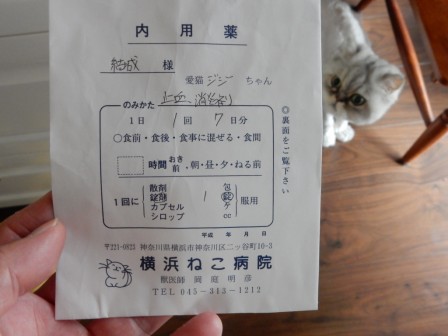 内用薬
結城 様
愛猫 ジジ ちゃん
のみかた 止血、消炎剤
1日 1回 7日分
○食前・食後・食事に混ぜる・食間
時間 おき 前 、朝・昼・夕・ねる前
1回に 散剤 錠剤 カプセル シロップ 1 包 錠 ケ cc 服用
◎裏面をご覧下さい
平成 年 月 日
〒221-0823 神奈川県横浜市神奈川区二ッ谷町10-3
横浜ねこ病院
獣医師 岡庭明彦
TEL 045-313-1212